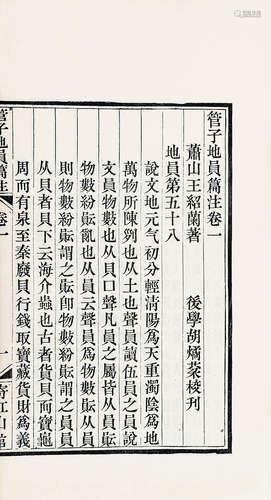 管子地員篇注卷一
蕭山王紹蘭著　後學胡燏棻校刊
地員第五十八
說文地元气初分輕清陽爲天重濁陰爲地
萬物所陳列也从土也聲員讀伍員之員說
文員物數也从貝口聲凡員之屬皆从員䝪
物數紛䝪亂也从員云聲員爲物數䝪从員
則物數紛䝪謂之䝪卽物數紛䝪謂之員員
从貝者貝下云海介蟲也古者貨貝而寶龜
周而有泉至秦廢貝行錢取寶藏貨財爲義
管子地員篇注
卷一
一
寄虹山館